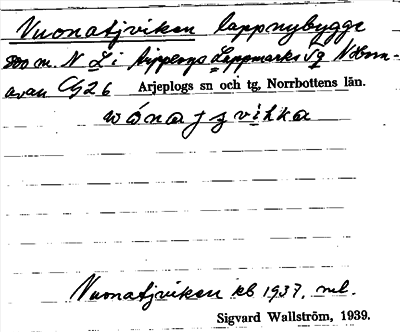 Vuonatjviken lappnybygge
800 m. N L i Arjeplogs Lappmarks sg V Horn-
avan Cg 26 Arjeplogs sn och tg, Norrbottens län.
wónajzvihka
Vuonatjviken kb 1937, nul.
Sigvard Wallström, 1939.